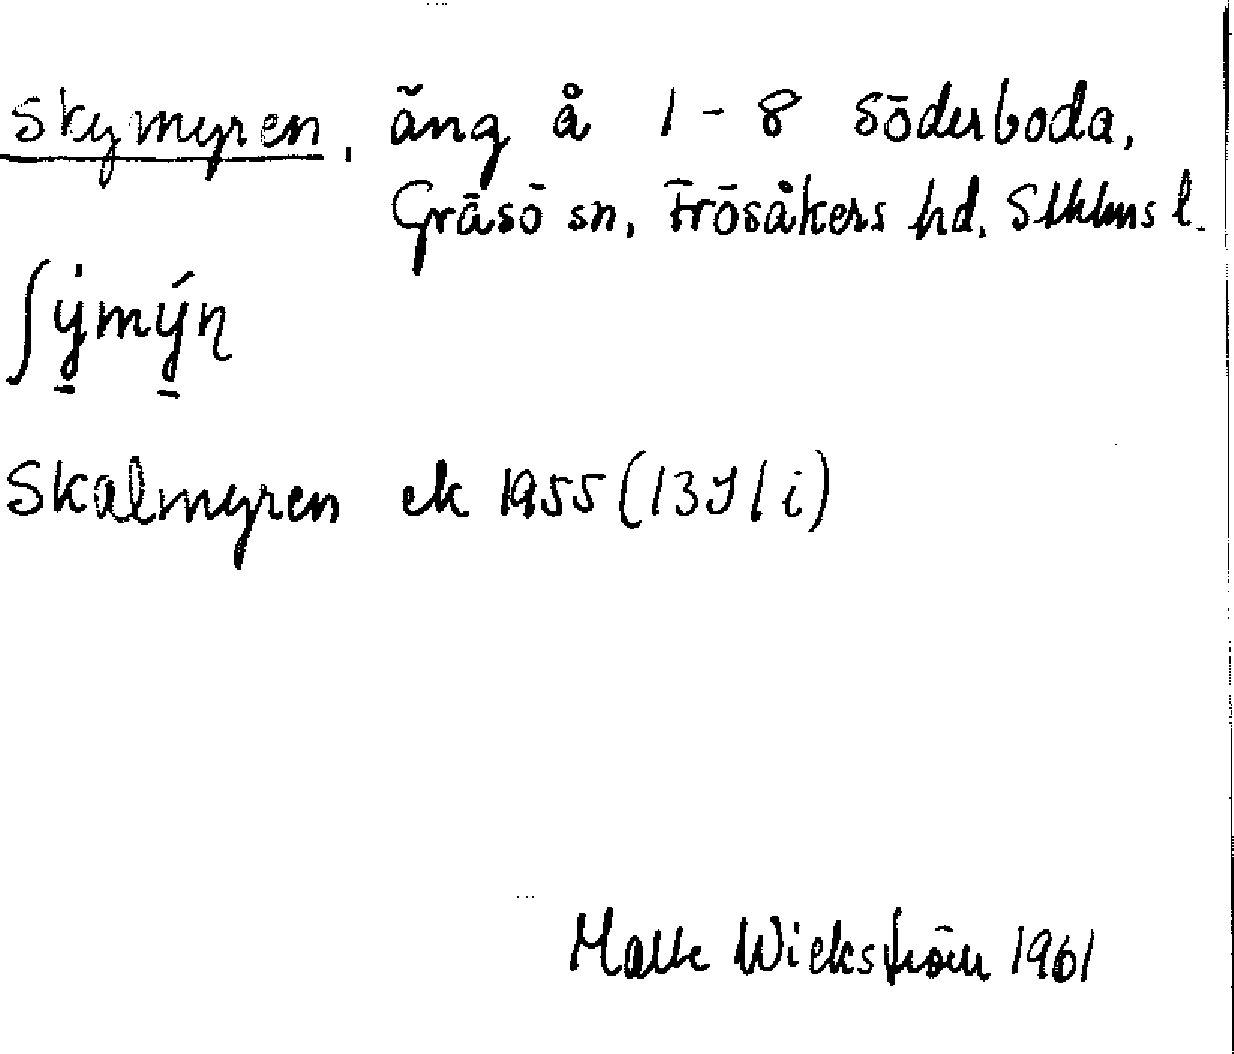 Skymyren, äng å 1-8 Söderboda,
Gräsö sn, Frösåkers hd. Sthlms l.
ʃy̠̍mý̠ɳ
Skalmyren ek 1955 (13J1i)
Wickström 1961